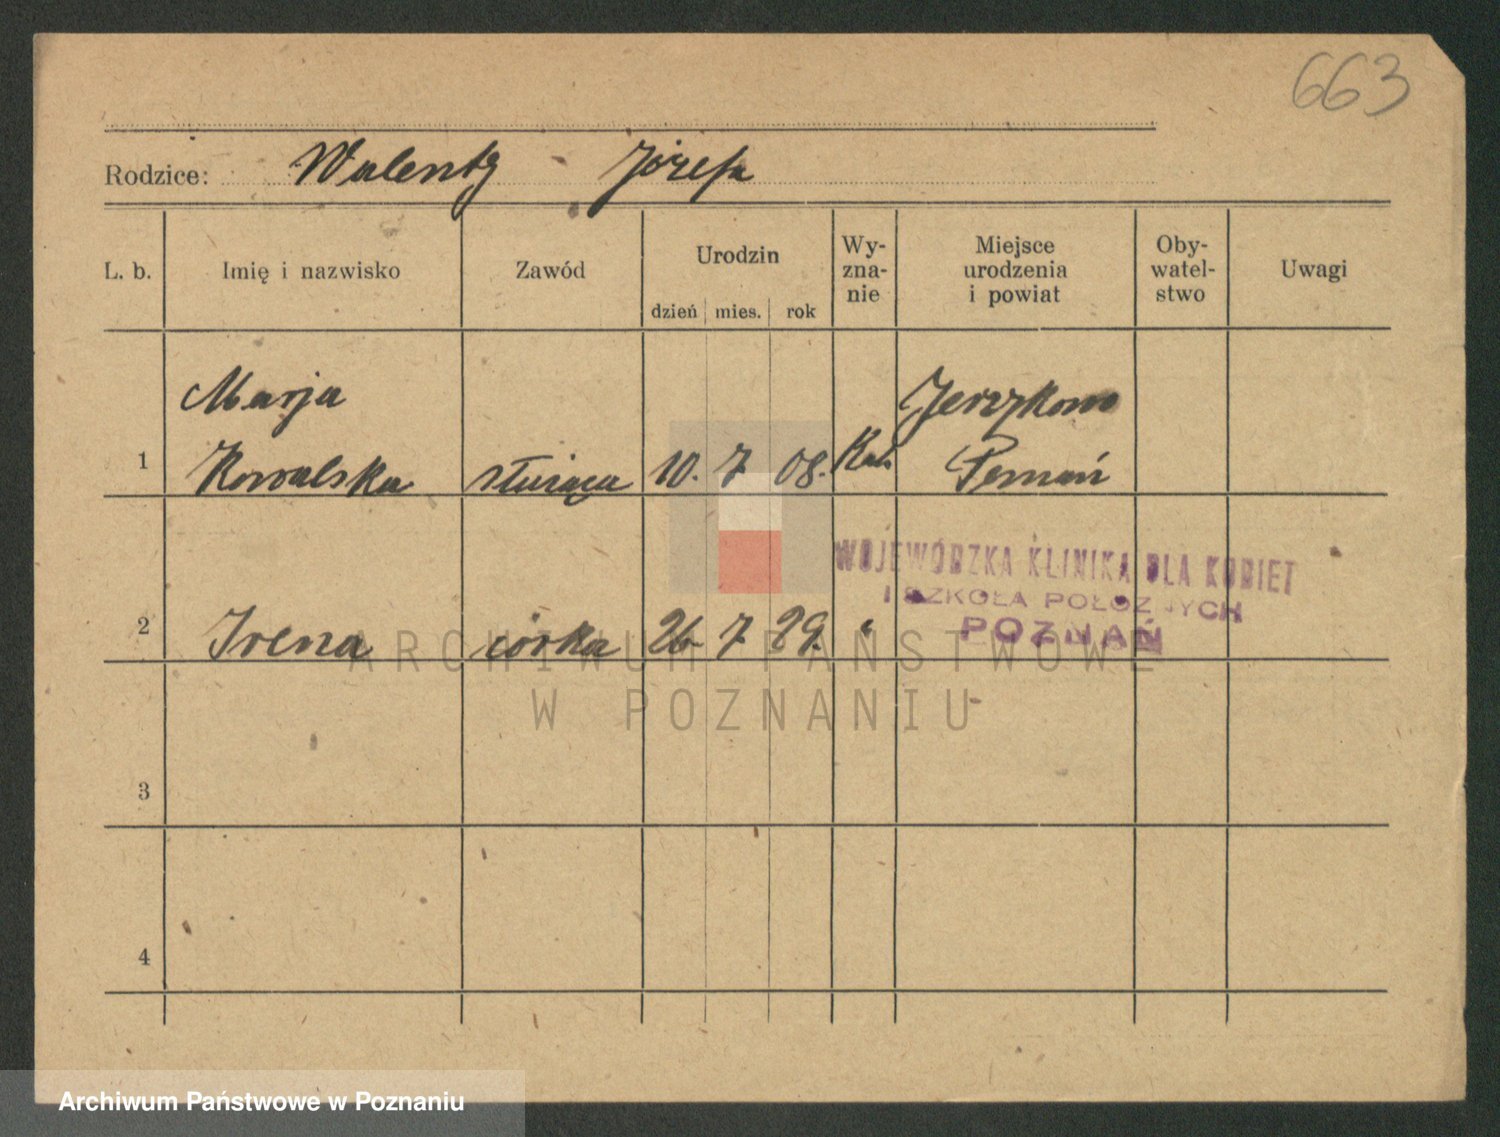 663
Rodzice: Walenty Józefa
L. b. Imię i nazwisko Zawód Urodzin dzień mies. rok Wy-zna-nie Miejsce urodzenia i powiat Oby-watel-stwo Uwagi
Marja Jerzykowo
1 Kowalska służąca 10. 7 08. Kat. Poznań
WOJEWÓDZKA KLINIKA DLA KOBIET
I SZKOŁA POŁOŻNYCH
POZNAŃ
2 Irena córka 26. 7 29. "
ARCHIWUM PAŃSTWOWE
W POZNANIU
3
4
Archiwum Państwowe w Poznaniu